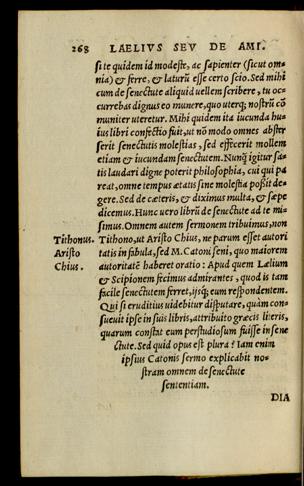 268 LAELIVS SEV DE AMI.
si te quidem id modeste, ac sapienter (sicut om-
nia) & ferre, & laturū esse certo scio. Sed mihi
cum de senectute aliquid vellem scribere, tu oc-
currebas dignus eo munere, quo uterq; nostrū cō
muniter uteretur. Mihi quidem ita iucunda hu-
ius libri confectio fuit, ut nō modo omnes abster
serit senectutis molestias, sed effecerit mollem
etiam & iucundam senectutem. Nunq̄ igitur sa-
tis laudari digne poterit philosophia, cui qui pa
reat, omne tempus ætatis sine molestia poßit de-
gere. Sed de cæteris, & diximus multa, & sæpe
dicemus. Hunc uero librū de senectute ad te mi-
simus. Omnem autem sermonem tribuimus, non
Tithonus. Tithono, ut Aristo Chius, ne parum esset autori
Aristo tatis in fabula, sed M. Catoni seni, quo maiorem
Chius. autoritatē haberet oratio: Apud quem Lælium
& Scipionem fecimus admirantes, quod is tam
facile senectutem ferret, ijsq; eum respondentem.
Qui si eruditius uidebitur disputare, quàm con-
sueuit ipse in suis libris, attribuito græcis literis,
quarum constat eum perstudiosum fuisse in sene
ctute. Sed quid opus est plura? Iam enim
ipsius Catonis sermo explicabit no-
stram omnem de senectute
sententiam.
DIA